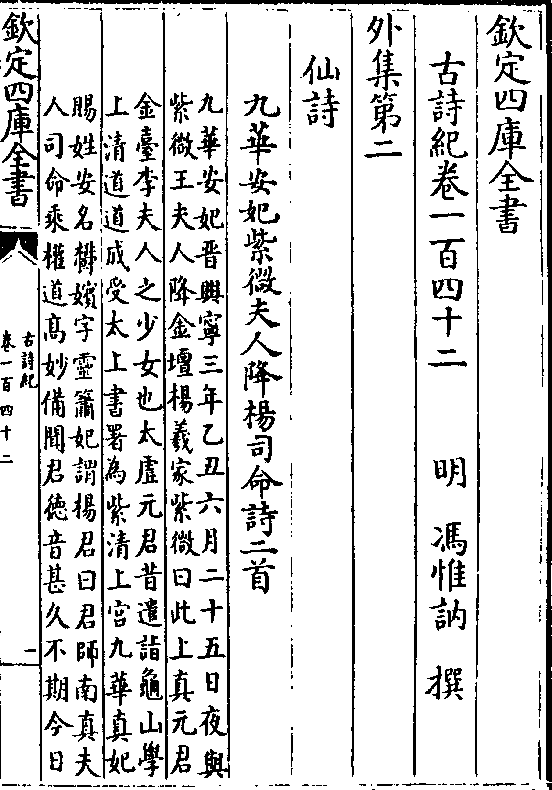 欽定四庫全書
古詩紀卷一百四十二 明 馮惟訥 撰
外集第二
仙詩
九華安妃紫微夫人降楊司命詩二首
九華安妃晋興寧三年乙丑六月二十五日夜與
紫微王夫人降金壇楊羲家紫微曰此上真元君
金臺李夫人之少女也太虚元君昔遣詣龜山學
上清道道成受太上書署為紫清上宫九華真妃
賜姓安名欝嬪字靈簫妃謂楊君曰君師南真夫
人司命乘權道髙妙備聞君德音甚久不期今日
欽定四庫全書
古詩紀
卷一百四十二
一